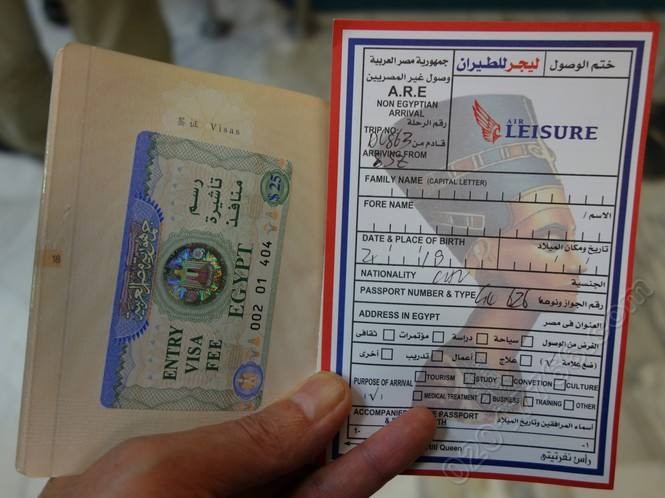 Visas
$ 25
رسم
تاشيرة
منافذ
جمهورية مصر العربية
ENTRY
VISA
FEE
EGYPT
002 01 404
18
جمهورية مصر العربية
وصول غير المصريين
A.R.E
NON EGYPTIAN
ARRIVAL
رقم الرحلة
TRIP NO
قادم من
ARRIVING FROM
ليجر للطيران
ختم الوصول
AIR
LEISURE
FAMILY NAME (CAPITAL LETTER)
FORE NAME
/ الاسم
DATE & PLACE OF BIRTH
تاريخ ومكان الميلاد
NATIONALITY
الجنسية
PASSPORT NUMBER & TYPE
رقم الجواز ونوعها
ADDRESS IN EGYPT
العنوان فى مصر
الغرض من الوصول
سياحة
دراسة
مؤتمرات
ثقافى
(ضع علامة √)
علاج
أعمال
تدريب
أخرى
PURPOSE OF ARRIVAL
(√)
TOURISM
STUDY
CONVETION
CULTURE
MEDICAL TREATMENT
BUSINESS
TRAINING
OTHER
ACCOMPANIED
PASSPORT
أسماء المرافقين وتاريخ الميلاد
1-
-1
Queen
رأس نفرتيتي